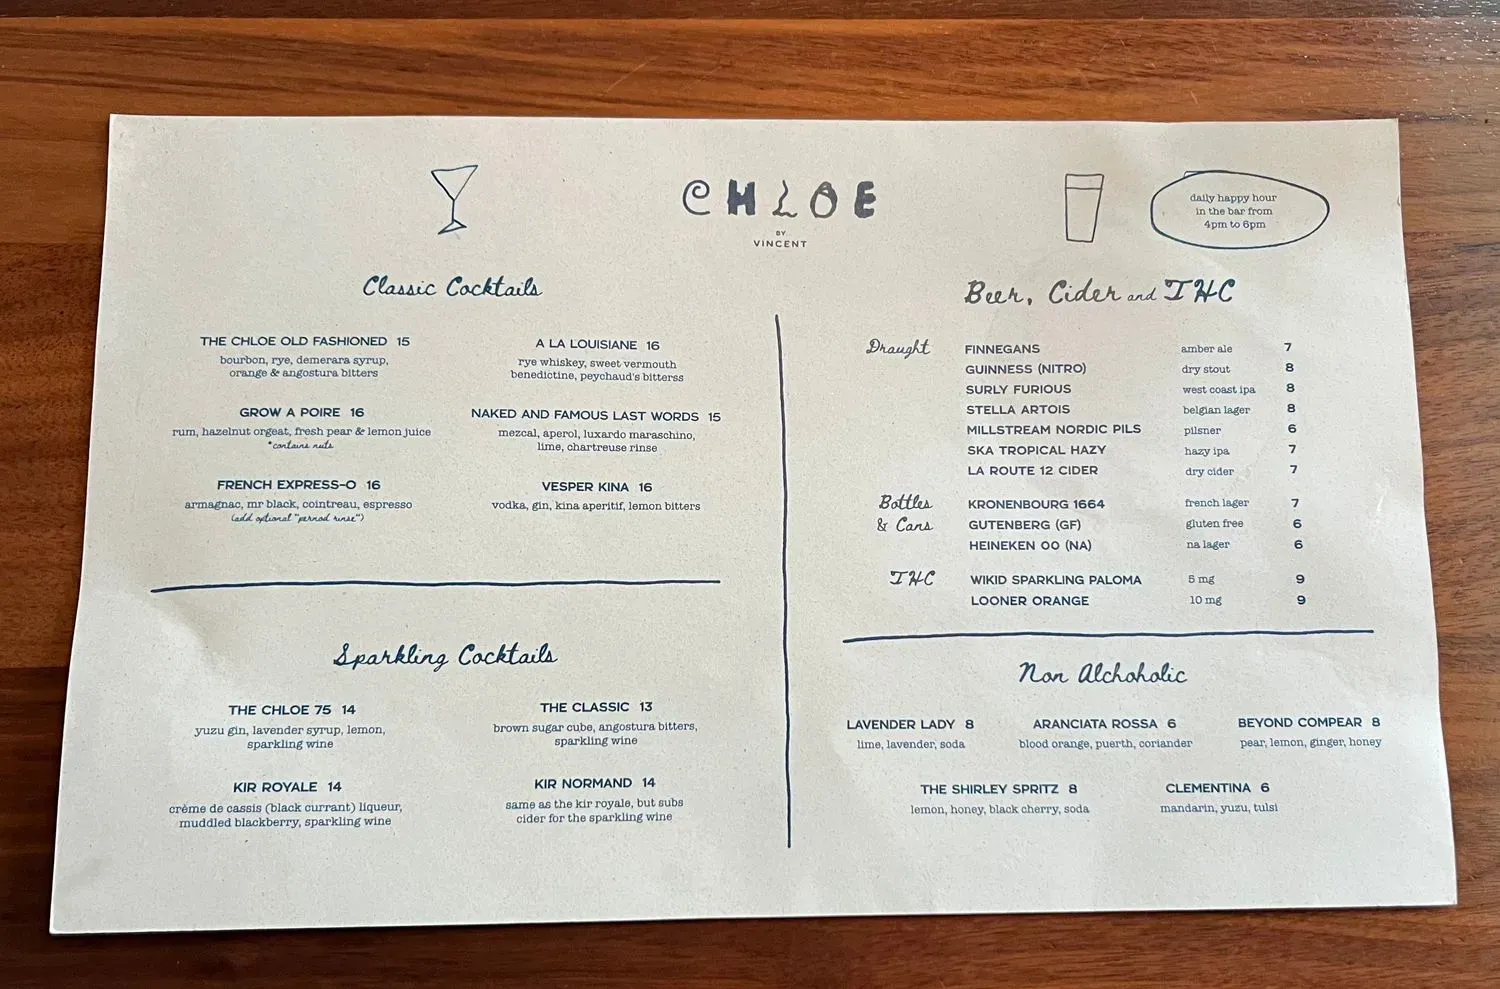 CHLOE
BY
VINCENT
daily happy hour
in the bar from
4pm to 6pm
Classic Cocktails
THE CHLOE OLD FASHIONED 15
bourbon, rye, demerara syrup,
orange & angostura bitters
A LA LOUISIANE 16
rye whiskey, sweet vermouth
benedictine, peychaud's bitterss
GROW A POIRE 16
rum, hazelnut orgeat, fresh pear & lemon juice
*contains nuts
NAKED AND FAMOUS LAST WORDS 15
mezcal, aperol, luxardo maraschino,
lime, chartreuse rinse
FRENCH EXPRESS-O 16
armagnac, mr black, cointreau, espresso
(add optional "pernod rinse")
VESPER KINA 16
vodka, gin, kina aperitif, lemon bitters
Sparkling Cocktails
THE CHLOE 75 14
yuzu gin, lavender syrup, lemon,
sparkling wine
THE CLASSIC 13
brown sugar cube, angostura bitters,
sparkling wine
KIR ROYALE 14
crème de cassis (black currant) liqueur,
muddled blackberry, sparkling wine
KIR NORMAND 14
same as the kir royale, but subs
cider for the sparkling wine
Beer, Cider and THC
Draught FINNEGANS amber ale 7
GUINNESS (NITRO) dry stout 8
SURLY FURIOUS west coast ipa 8
STELLA ARTOIS belgian lager 8
MILLSTREAM NORDIC PILS pilsner 6
SKA TROPICAL HAZY hazy ipa 7
LA ROUTE 12 CIDER dry cider 7
Bottles KRONENBOURG 1664 french lager 7
& Cans GUTENBERG (GF) gluten free 6
HEINEKEN OO (NA) na lager 6
THC WIKID SPARKLING PALOMA 5 mg 9
LOONER ORANGE 10 mg 9
Non Alchoholic
LAVENDER LADY 8 ARANCIATA ROSSA 6 BEYOND COMPEAR 8
lime, lavender, soda blood orange, puerth, coriander pear, lemon, ginger, honey
THE SHIRLEY SPRITZ 8 CLEMENTINA 6
lemon, honey, black cherry, soda mandarin, yuzu, tulsi